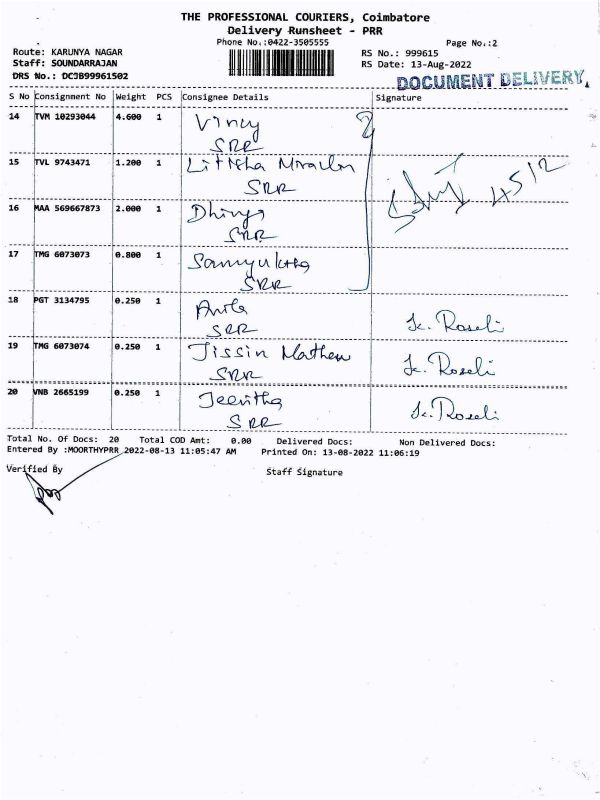 THE PROFESSIONAL COURIERS, Coimbatore
Delivery Runsheet - PRR
Phone No.:0422-3505555
Page No.:2
Route: KARUNYA NAGAR
RS No.: 999615
Staff: SOUNDARRAJAN
RS Date: 13-Aug-2022
DRS No.: DCJB99961502
DOCUMENT DELIVERY.
S No Consignment No Weight PCS Consignee Details Signature
14 TVM 10293044 4.600 1 Vincy
SRR
15 TVL 9743471 1.200 1
SRR
4512
16 MAA 569667873 2.000 1 Dhivya
SRR
17 TMG 6073073 0.800 1 Samyuktha
SRR
18 PGT 3134795 0.250 1 Anita
SRR
K. Roseli
19 TMG 6073074 0.250 1 Jissin Mathew
SRR
K. Roseli
20 VNB 2665199 0.250 1 Jeevitha
SRR
K. Roseli
Total No. Of Docs: 20 Total COD Amt: 0.00 Delivered Docs: Non Delivered Docs:
Entered By :MOORTHYPRR 2022-08-13 11:05:47 AM Printed On: 13-08-2022 11:06:19
Verified By Staff Signature